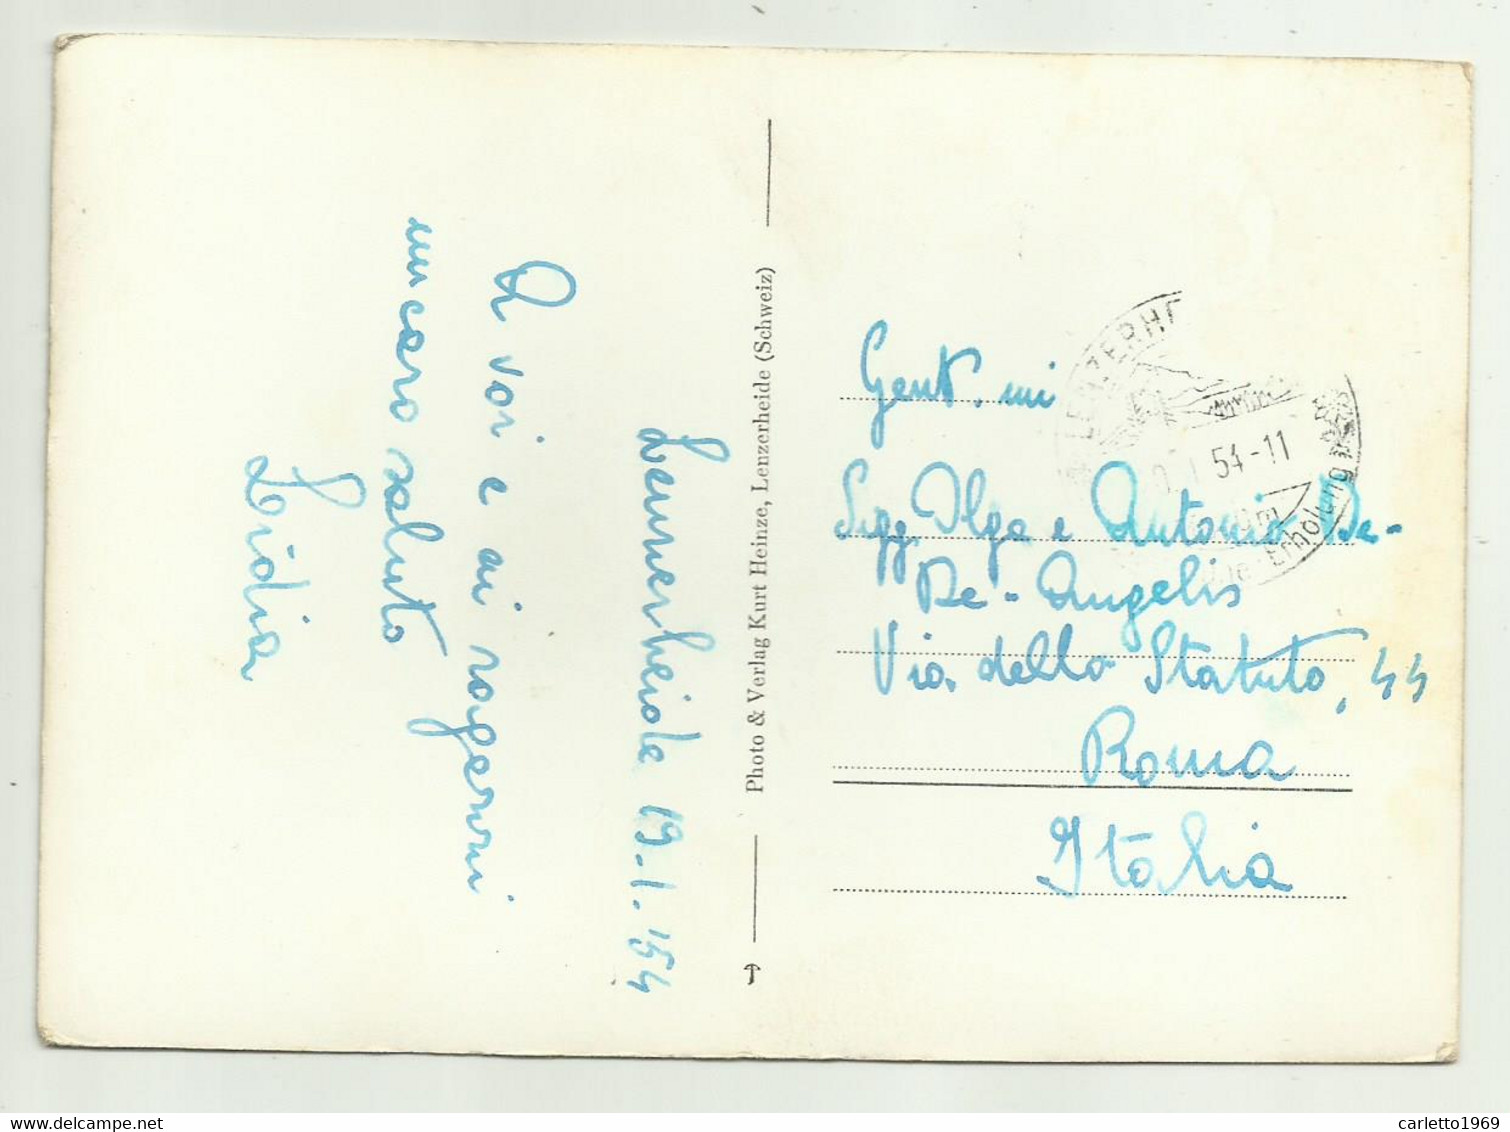 Lennerheide 19.1.'54
A voi e ai ragazzi
un caro saluto
Lidia
Photo & Verlag Kurt Heinze, Lenzerheide (Schweiz)
LENZERHE
54-11
Erholung
Gent.mi
Sigg. Olga e Antonio De-
De-Angelis
Via dello Statuto, 44
Roma
Italia
carletto1969